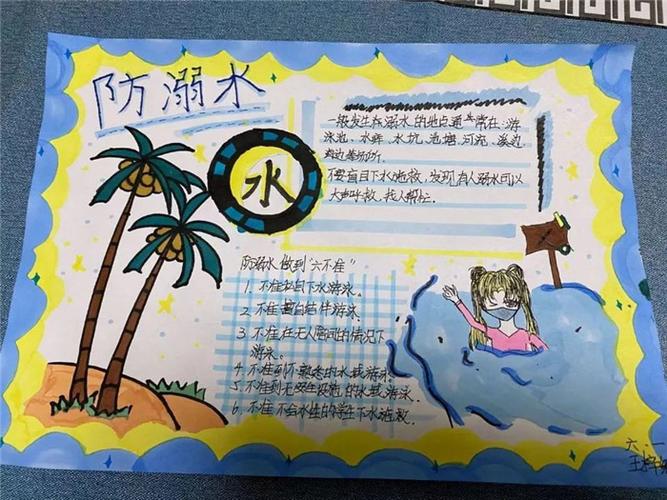 防溺水
水
一般发生在溺水的地点通常在:游
泳池、水库、水坑、池塘、河流、溪边、
海边等场所。
不要盲目下水施救,发现有人溺水可以
大声呼救,找人帮忙。
防溺水做到“六不准”
1、不准私自下水游泳。
2、不准擅自结伴游泳。
3、不准在无人陪同的情况下
游泳。
4、不准到不熟悉的水域游泳。
5、不准到无安全设施的水域游泳。
6、不准不会水性的学生下水施救。
六.一
王